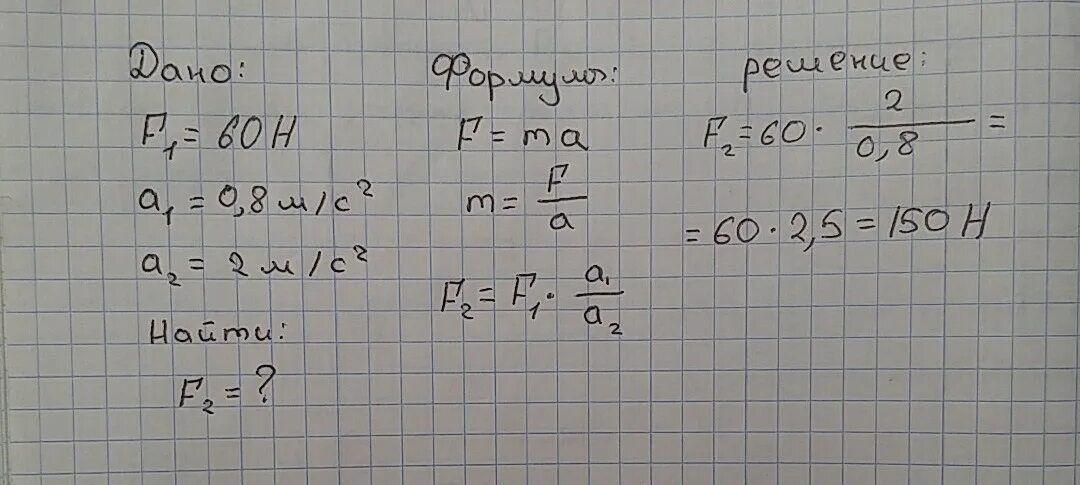 Дано:
F₁ = 60 Н
a₁ = 0,8 м/с²
a₂ = 2 м/с²
Найти:
F₂ = ?
Формулы:
F = ma
m = F/a
F₂ = F₁ · a₁/a₂
решение:
F₂ = 60 · 2/0,8 =
= 60 · 2,5 = 150 Н